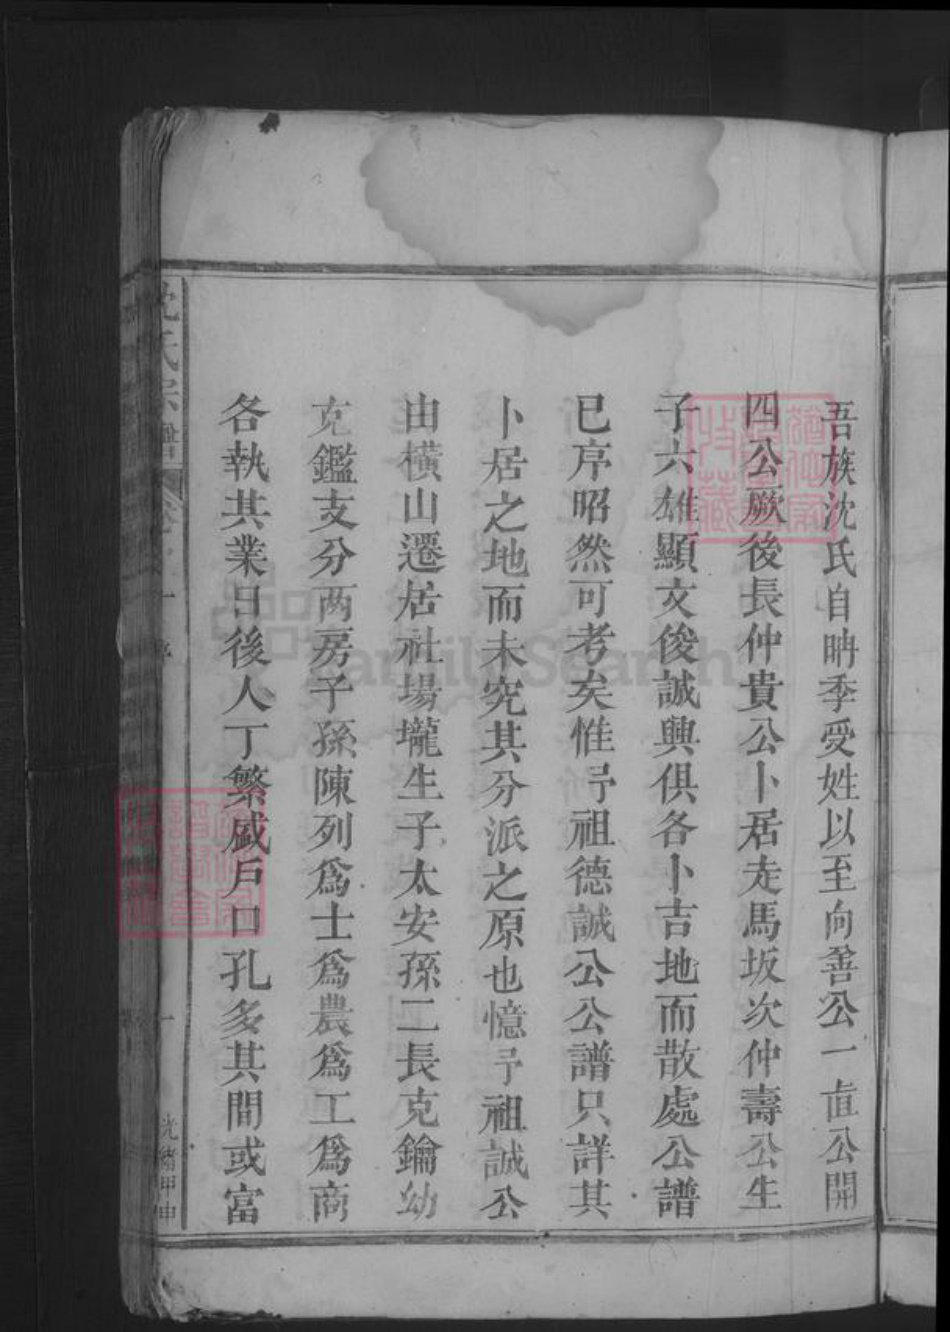 吾族沈氏自聃季受姓以至向善公一直公開
四公厥後長仲貴公卜居走馬坂次仲壽公生
子六雄顯文俊誠興俱各卜吉地而散處公譜
已序昭然可考矣惟予祖德誠公公譜只詳其
卜居之地而未究其分派之原也憶予祖誠公
由橫山遷居社場壠生子太安孫二長克鑰幼
克鑑支分两房子孫陳列爲士爲農爲工爲商
各執其業日後人丁繁盛戶口孔多其間或富
沈氏宗譜 卷一 序 一 光緒甲申
FamilySearch